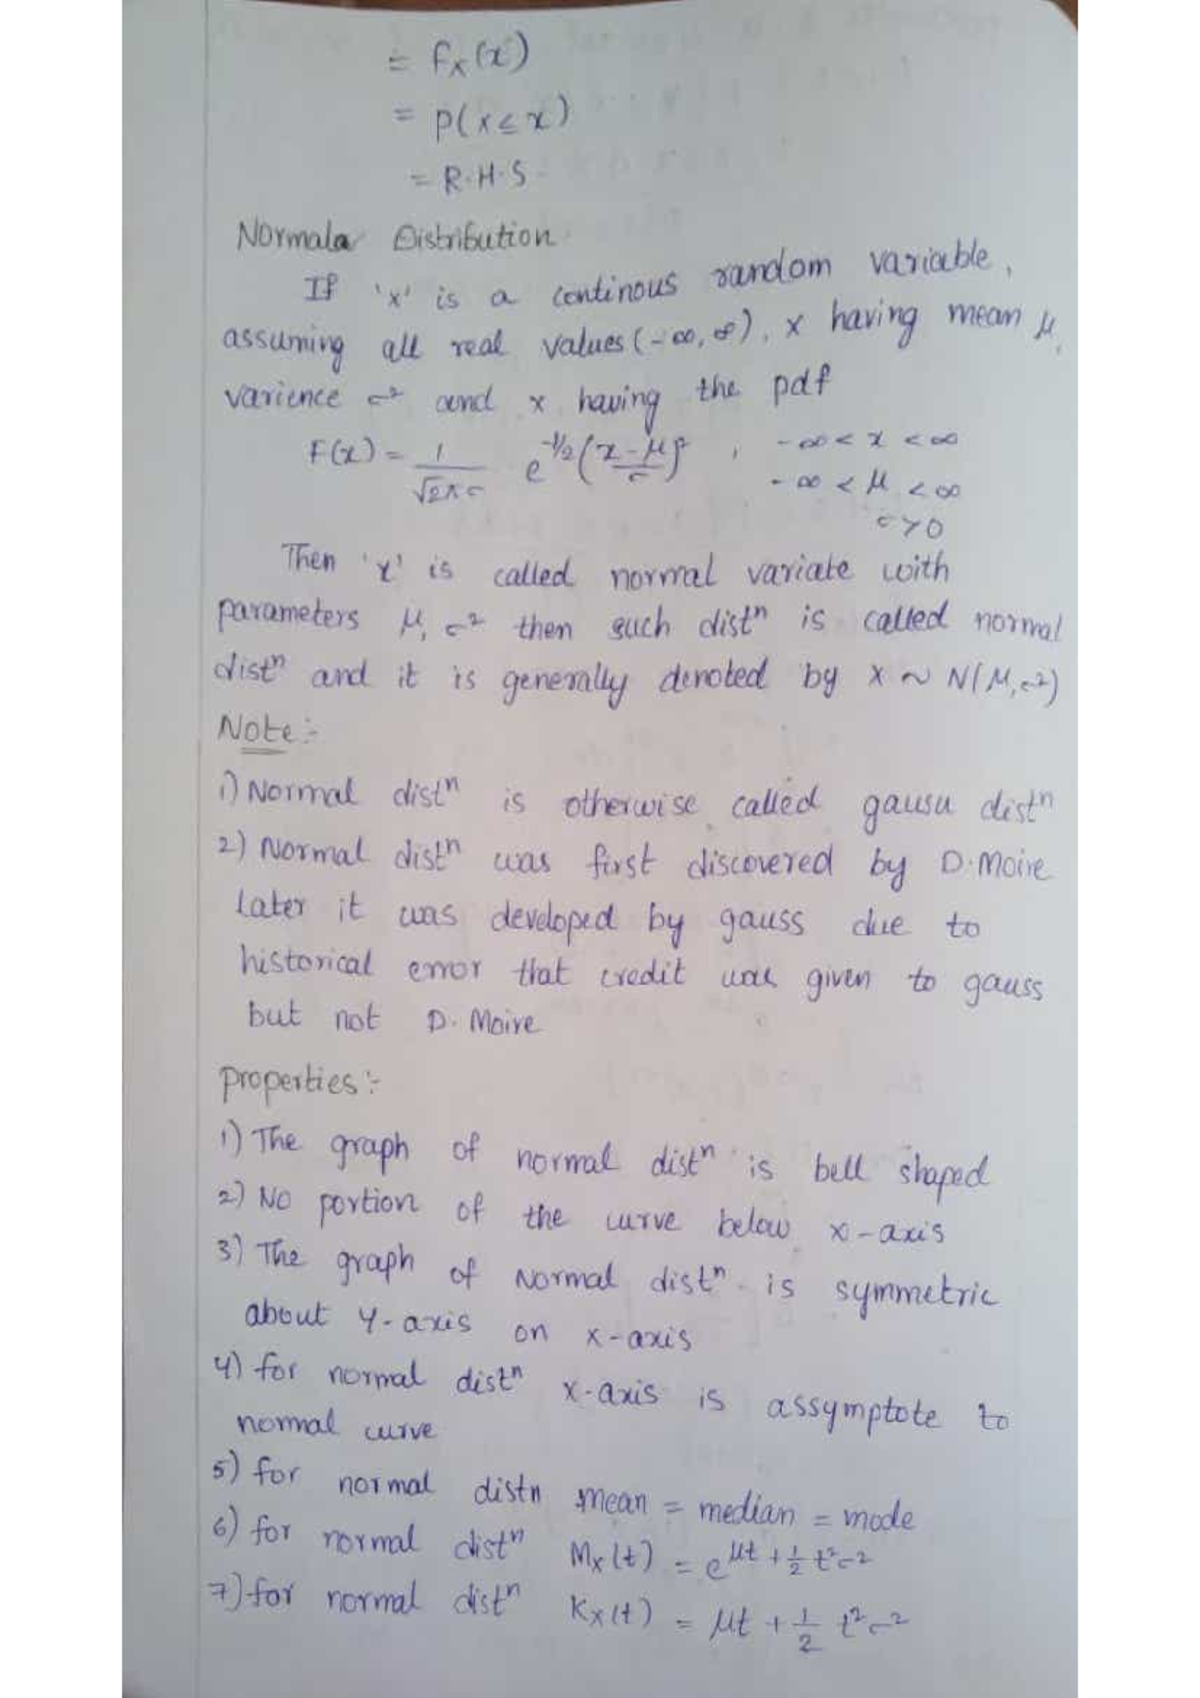 = Fx(x)
= P(x ≤ x)
= R.H.S
Normala Distribution
If 'x' is a continous random variable,
assuming all real values (-∞, ∞), x having mean μ,
varience σ² and x having the pdf
F(x) = 1/√2πσ e^-1/2(x-μ/σ)² , -∞ < x < ∞
-∞ < μ < ∞
σ>0
Then 'x' is called normal variate with
parameters μ, σ² then such distⁿ is called normal
distⁿ and it is generally denoted by x ~ N(μ, σ²)
Note:-
1) Normal distⁿ is otherwise called gausu distⁿ
2) Normal distⁿ was first discovered by D.Moire
Later it was developed by gauss due to
historical error that credit was given to gauss
but not D.Moire
properties:-
1) The graph of normal distⁿ is bell shaped
2) No portion of the curve below x-axis
3) The graph of Normal distⁿ is symmetric
about Y-axis on x-axis
4) for normal distⁿ x-axis is assymptote to
normal curve
5) for normal distn mean = median = mode
6) for normal distⁿ Mx(t) = e^μt + 1/2 t²σ²
7) for normal distⁿ Kx(t) = μt + 1/2 t²σ²